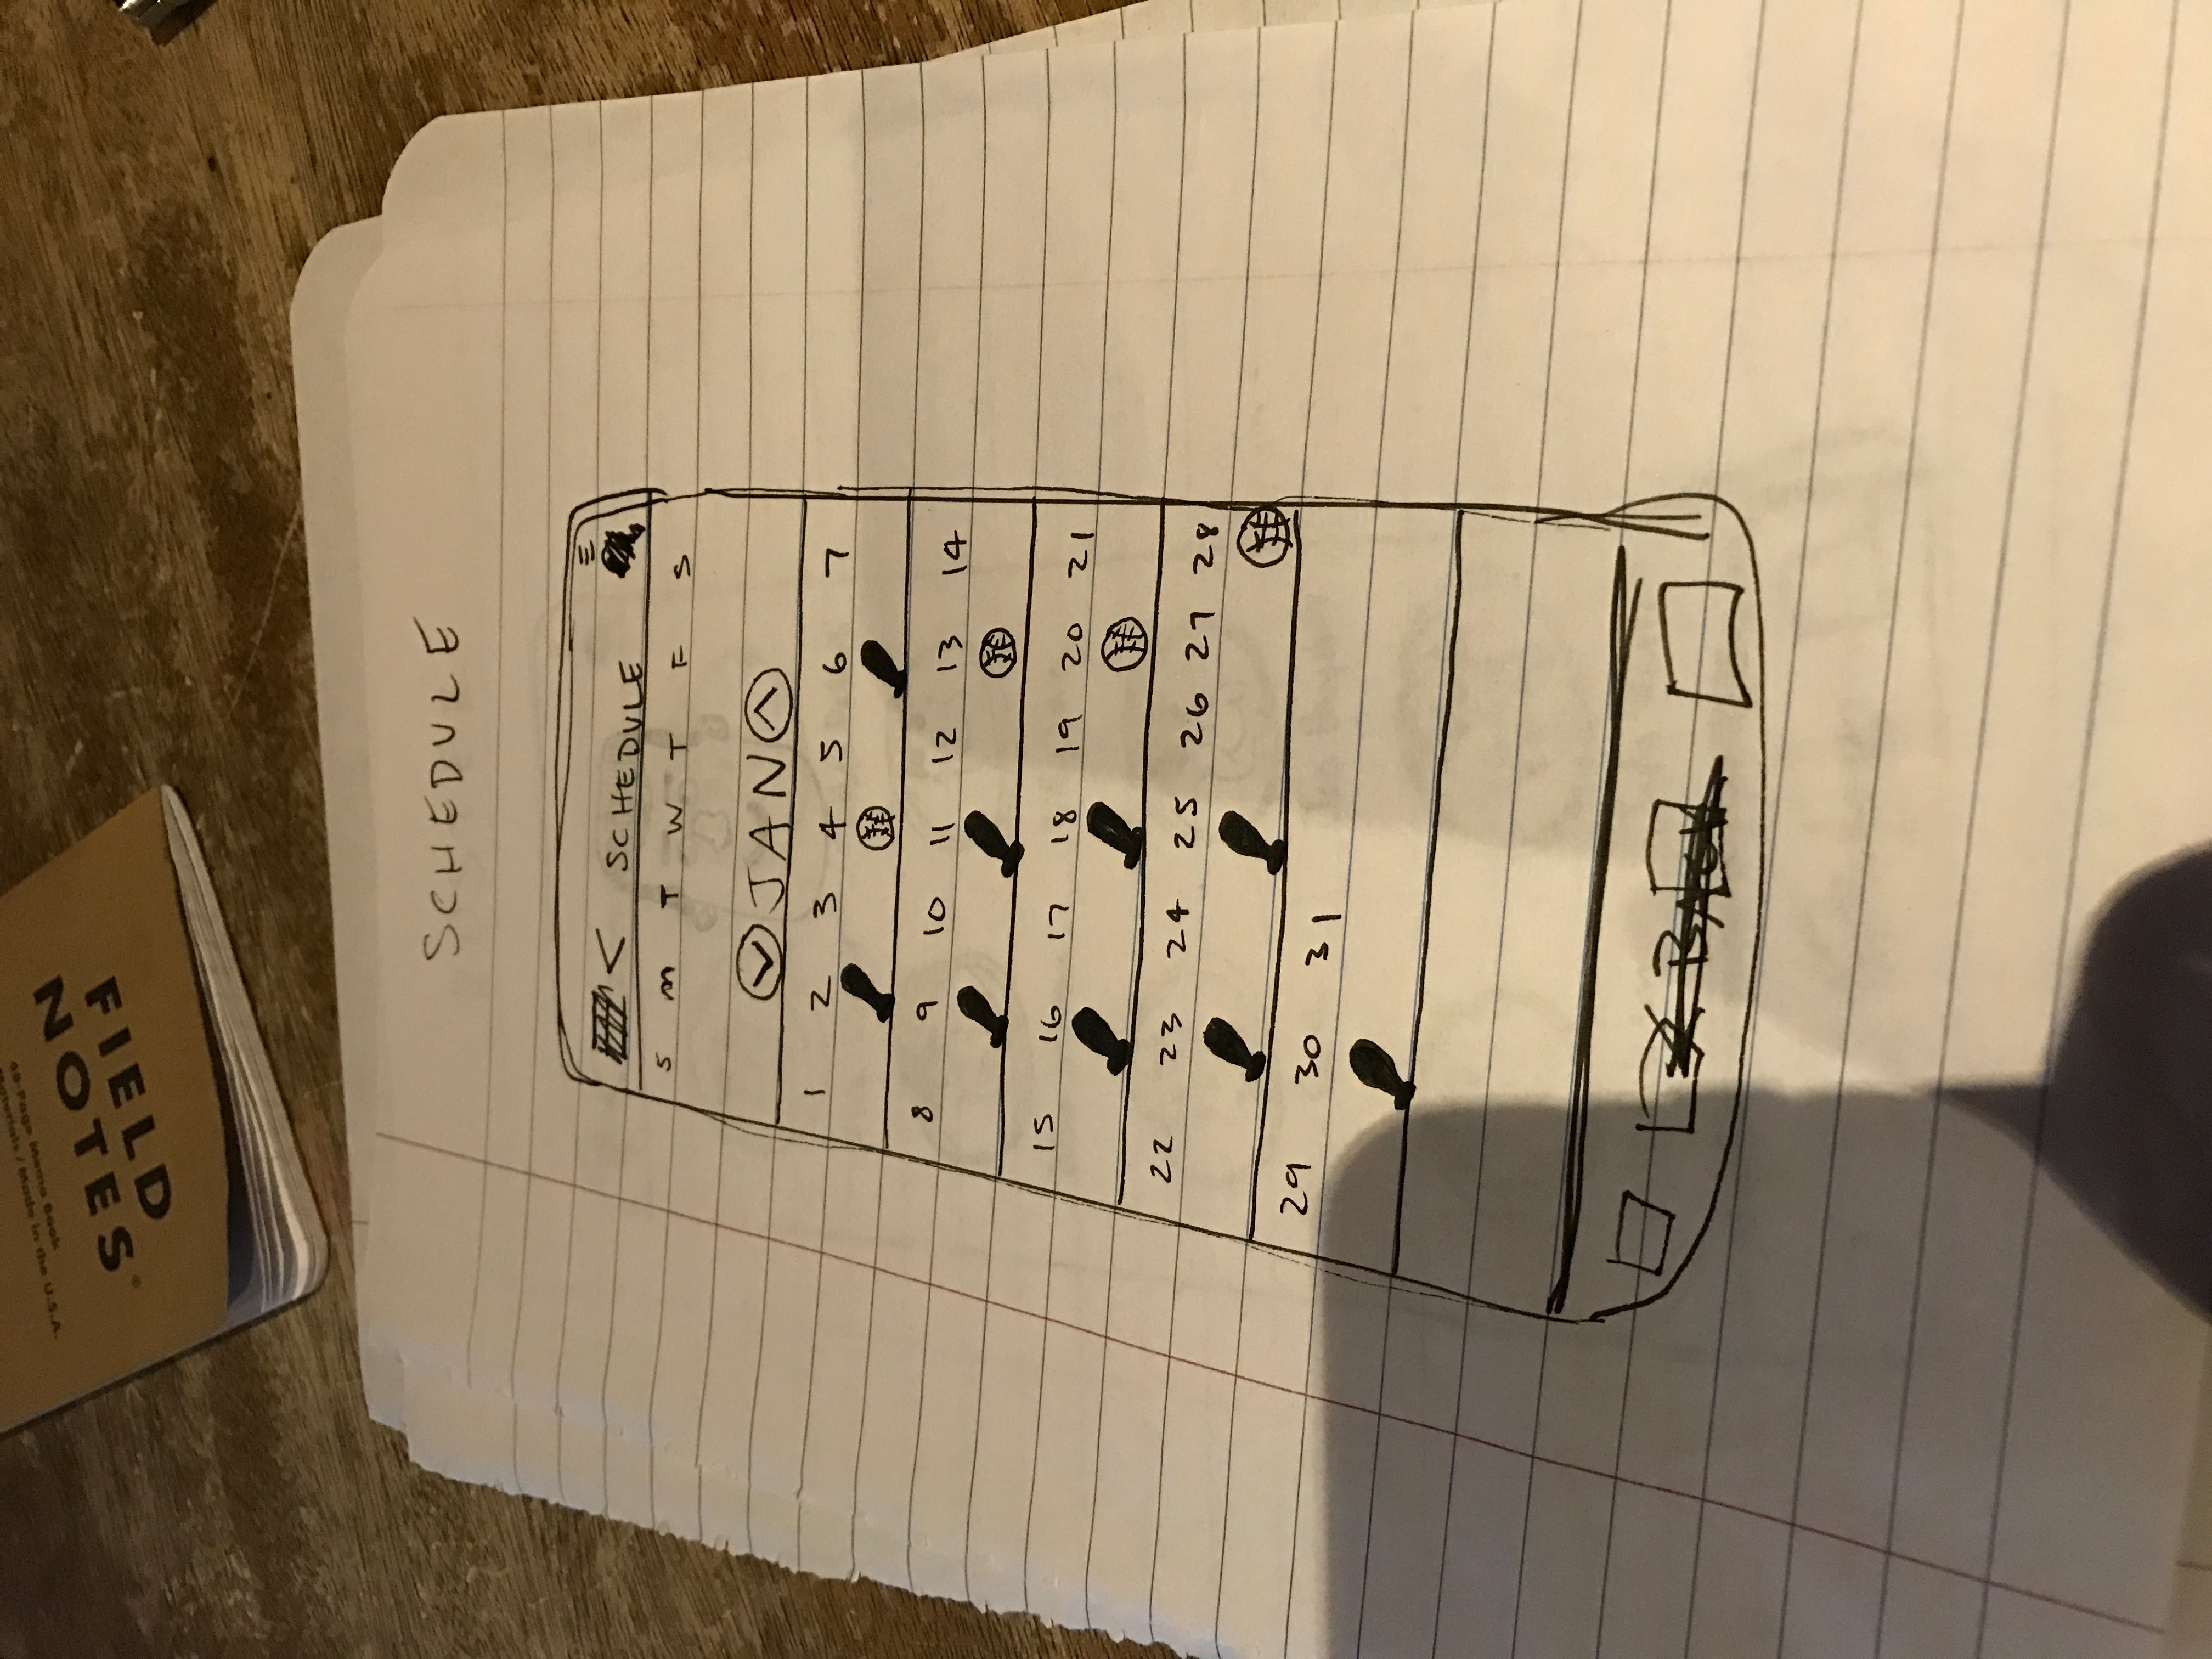 FIELD
NOTES
48-Page Memo Book
Materials / Made in the U.S.A.
SCHEDULE
< SCHEDULE
S M T W T F S
JAN
1 2 3 4 5 6 7
8 9 10 11 12 13 14
15 16 17 18 19 20 21
22 23 24 25 26 27 28
29 30 31
BACK